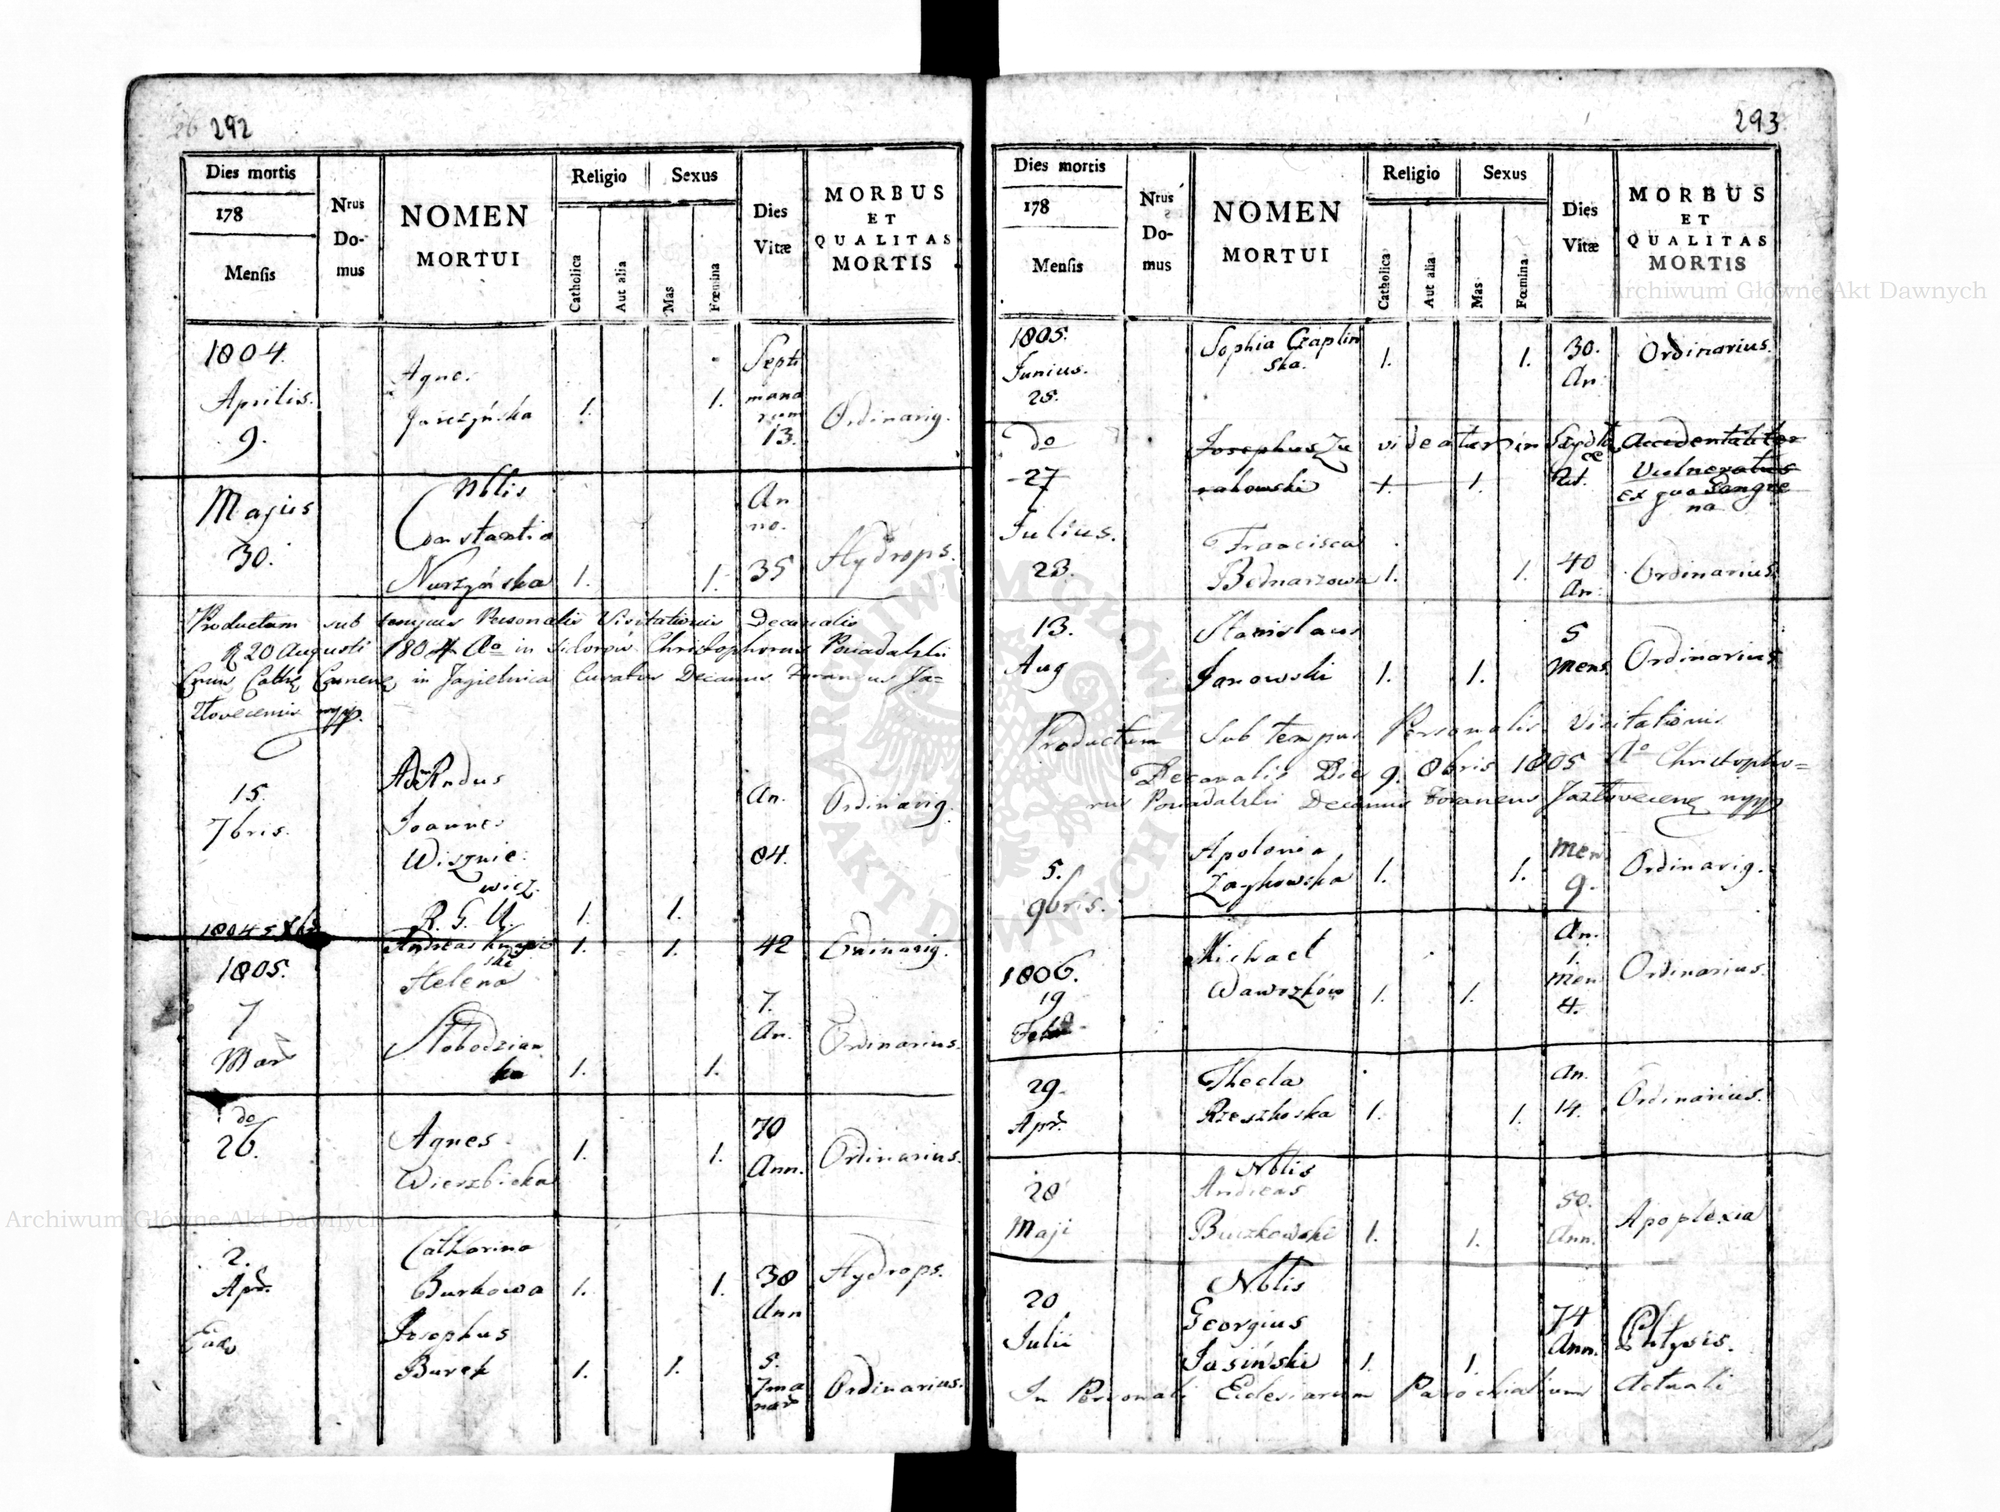 292
Dies mortis
178
Mensis
Nrus
Do-
mus
NOMEN
MORTUI
Religio
Sexus
Catholica
Aut alia
Mas
Fœmina
Dies
Vitæ
MORBUS
ET
QUALITAS
MORTIS
1804.
Aprilis.
9.
Agnes
1.
1.
Septi
mana
rum
13.
Ordinarig.
Majus
30.
Nblis
Constantia
Nurzyńska
1.
1.
An
no.
35
Hydrops.
Productum sub tempus Personalis Visitationis Decanalis
20 Augusti 1804 Ao in Sidorów Christophorus
in Jagielnica Curatus Decanus Foraneus Ja-
złovecensis mpp.
15.
7bris.
Joannes
Wisznie
wicz.
R. G. U.
1.
1.
An.
84.
Ordinarig.
1804 5 Xbr
Andreas
1.
1.
42
Ordinarig.
1805.
7
Mar
Helena
Słobodzian
ka
1.
1.
7.
An.
Ordinarius.
do
26.
Agnes
Wierzbicka
1.
1.
70
Ann.
Ordinarius.
2.
Apr.
Catharina
Burkowa
1.
1.
38
Ann
Hydrops.
Josephus
Burek
1.
1.
5.
7ma
nar
Ordinarius.
293
Dies mortis
178
Mensis
Nrus
Do-
mus
NOMEN
MORTUI
Religio
Sexus
Catholica
Aut alia
Mas
Fœmina
Dies
Vitæ
MORBUS
ET
QUALITAS
MORTIS
1805.
Junius.
25.
Sophia Czaplin
ska.
1.
1.
30.
An.
Ordinarius.
do
27
Josephus Zu
rakowski
videatur in
1.
1.
Accidentaliter
Vulneratus
ex qua Sangre
na
Julius.
23.
Francisca
Bednarzowa
1.
1.
40
An.
Ordinarius.
13.
Aug
Stanislaus
Janowski
1.
1.
5
mens
Ordinarius
Productum Sub tempus Personalis Visitationis
Decanalis Die 9. 8bris 1805 Ao Christopho=
rus Decanus Foraneus mpp
5.
9bris.
Apolonia
Zaykowska
1.
1.
men
9.
Ordinarig.
1806.
19
Feb
Michael
Wawrzków
1.
1.
An.
1.
men
4.
Ordinarius.
29.
Apr.
Thecla
Rzeszkoska
1.
1.
An.
14.
Ordinarius.
28
Maji
Nblis
Andreas
Buczkowski
1.
1.
50.
Ann.
Apoplexia
20
Julii
Nblis
Georgius
Jasiński
1.
1.
74
Ann.
Phtysis.
In Personali Eclesiarum Parochialium Actuali
ARCHIWUM GŁÓWNE AKT DAWNYCH
Archiwum Główne Akt Dawnych
Archiwum Główne Akt Dawnych